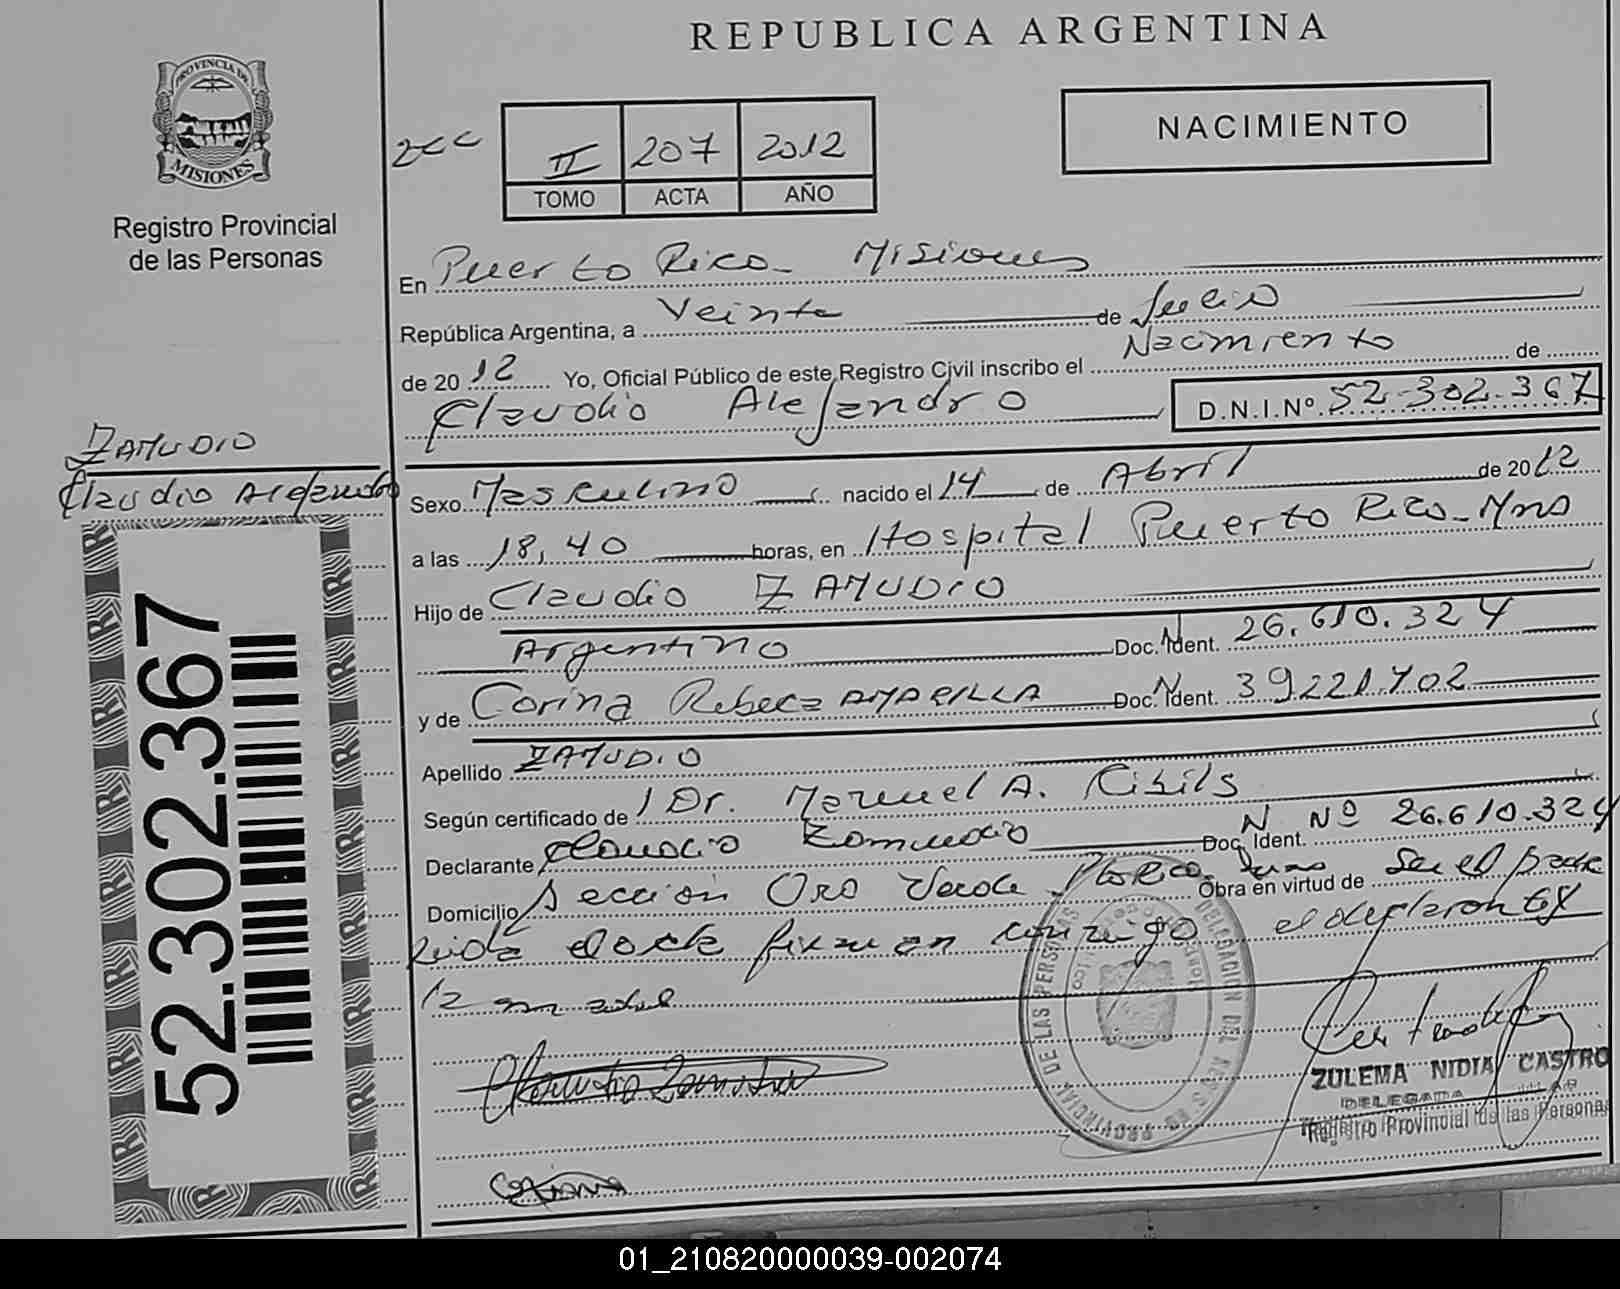 REPUBLICA ARGENTINA
PROVINCIA DE
MISIONES
Registro Provincial
de las Personas
II 207 2012
TOMO ACTA AÑO
NACIMIENTO
En Puerto Rico - Misiones
República Argentina, a Veinte de Julio
de 2012 Yo, Oficial Público de este Registro Civil inscribo el Nacimiento de
Claudio Alejandro D.N.I.Nº. 52-302-367
ZAMUDIO
Claudio Alejandro
Sexo Masculino nacido el 14 de Abril de 2012
a las 18,40 horas, en Hospital Puerto Rico - Mns
Hijo de Claudio ZAMUDIO
Argentino Doc. N Ident. 26.610.324
y de Corina Rebeca AMARILLA Doc. N Ident. 39221702
Apellido ZAMUDIO
Según certificado de Dr. Manuel A.
Declarante Claudio Zamudio Doc. N Ident. Nº 26.610.324
Domicilio Sección Oro Verde Pto Rico Obra en virtud de Ser el padre
Leida el acta firman conmigo el declarante y
la madre
52.302.367
REGISTRO PROVINCIAL DE LAS PERSONAS
ZULEMA NIDIA CASTRO
DELEGADA
Registro Provincial de las Personas
01_210820000039-002074